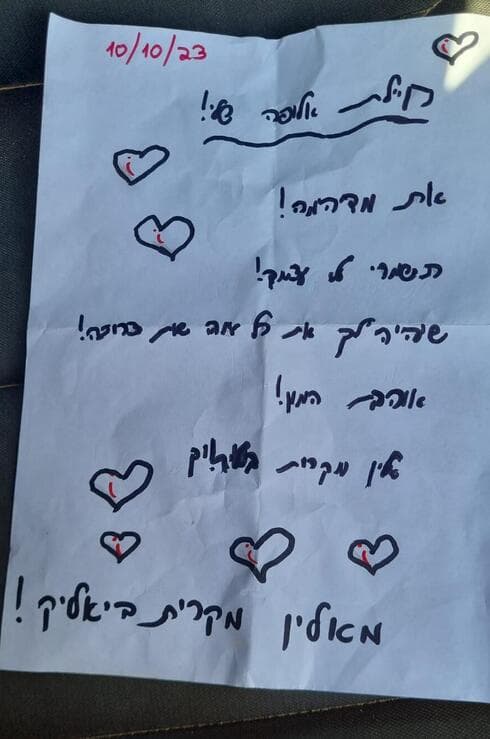 10/10/23
חיילת אלופה שלי!
את מדהימה!
תשמרי לי עצמך!
שיהיה לך את כל מה שאת צריכה!
אוהבת המון!
אלין מקרית
מאלין מקרית ביאליק!